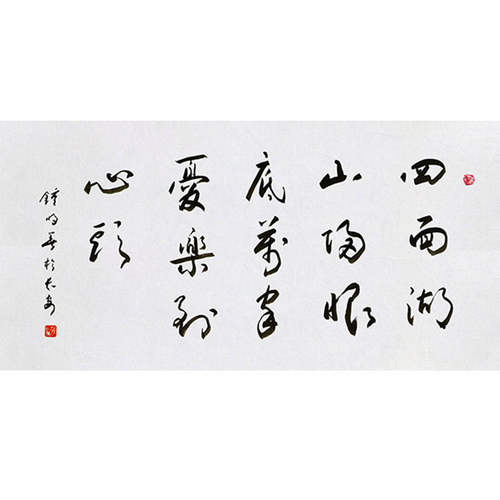 四面湖
山歸眼
底萬家
憂樂到
心頭
鍾明善於長安